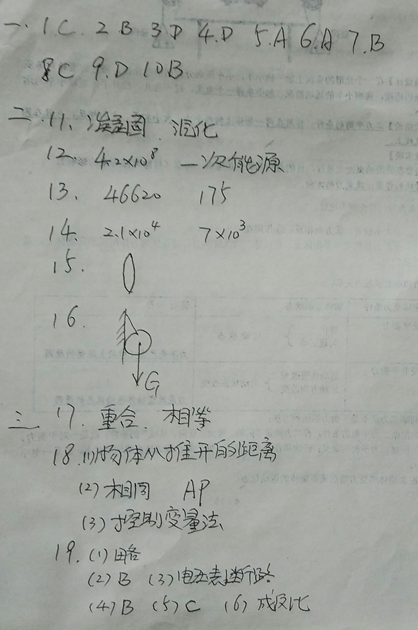 一、1C. 2B 3D 4.D 5.A 6.A 7.B
8C 9.D 10B
二、11、凝固 液化
12. 4.2×10⁸ 一次能源
13. 46620 175
14. 2.1×10⁴ 7×10³
15.
16.
G
三 17. 重合 相等
18.(1)物体从推开的距离
(2)相同 AP
(3)控制变量法
19.(1)略
(2)B (3)电压表断路
(4)B (5)C (6)成反比